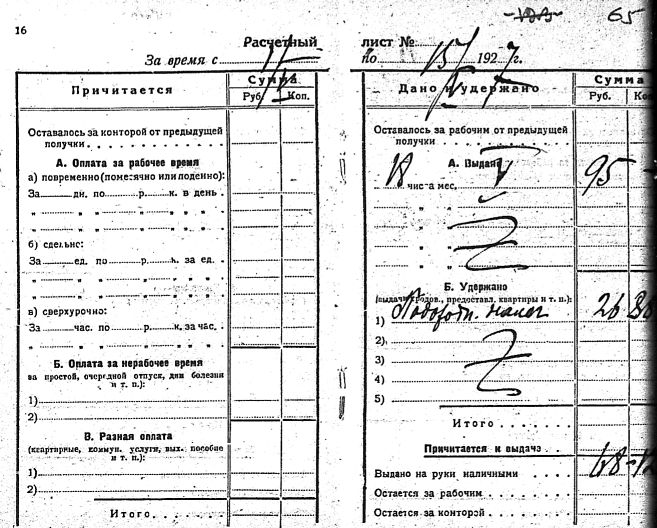 65
16
Расчетный
За время с
Причитается
Сумма
Руб. Коп.
Оставалось за конторой от предыдущей
получки
А. Оплата за рабочее время
а) повременно (помесячно или поденно):
За дн. по р. к. в день
" " " " " "
" " " " " "
б) сдельно:
За ед. по р. к. за ед.
" " " " " "
" " " " " "
в) сверхурочно:
За час. по р. к. за час.
" " " " " "
Б. Оплата за нерабочее время
(за простой, очередной отпуск, дни болезни
и т. п.):
1)
2)
В. Разная оплата
(квартирные, коммун. услуги, вых. пособие
и т. п.):
1)
2)
Итого
лист №
по 15/ 1927г.
Дано и удержано
Сумма
Руб. Ко
Оставалось за рабочим от предыдущей
получки
А. Выдано
18 числа мес. V 95 -
" "
" "
" "
Б. Удержано
(выдачи продов., предоставл. квартиры и т. п.):
1) Подоходн. налог 26 88
2)
3)
4)
5)
Итого
Причитается к выдаче
Выдано на руки наличными 68-12
Остается за рабочим
Остается за конторой